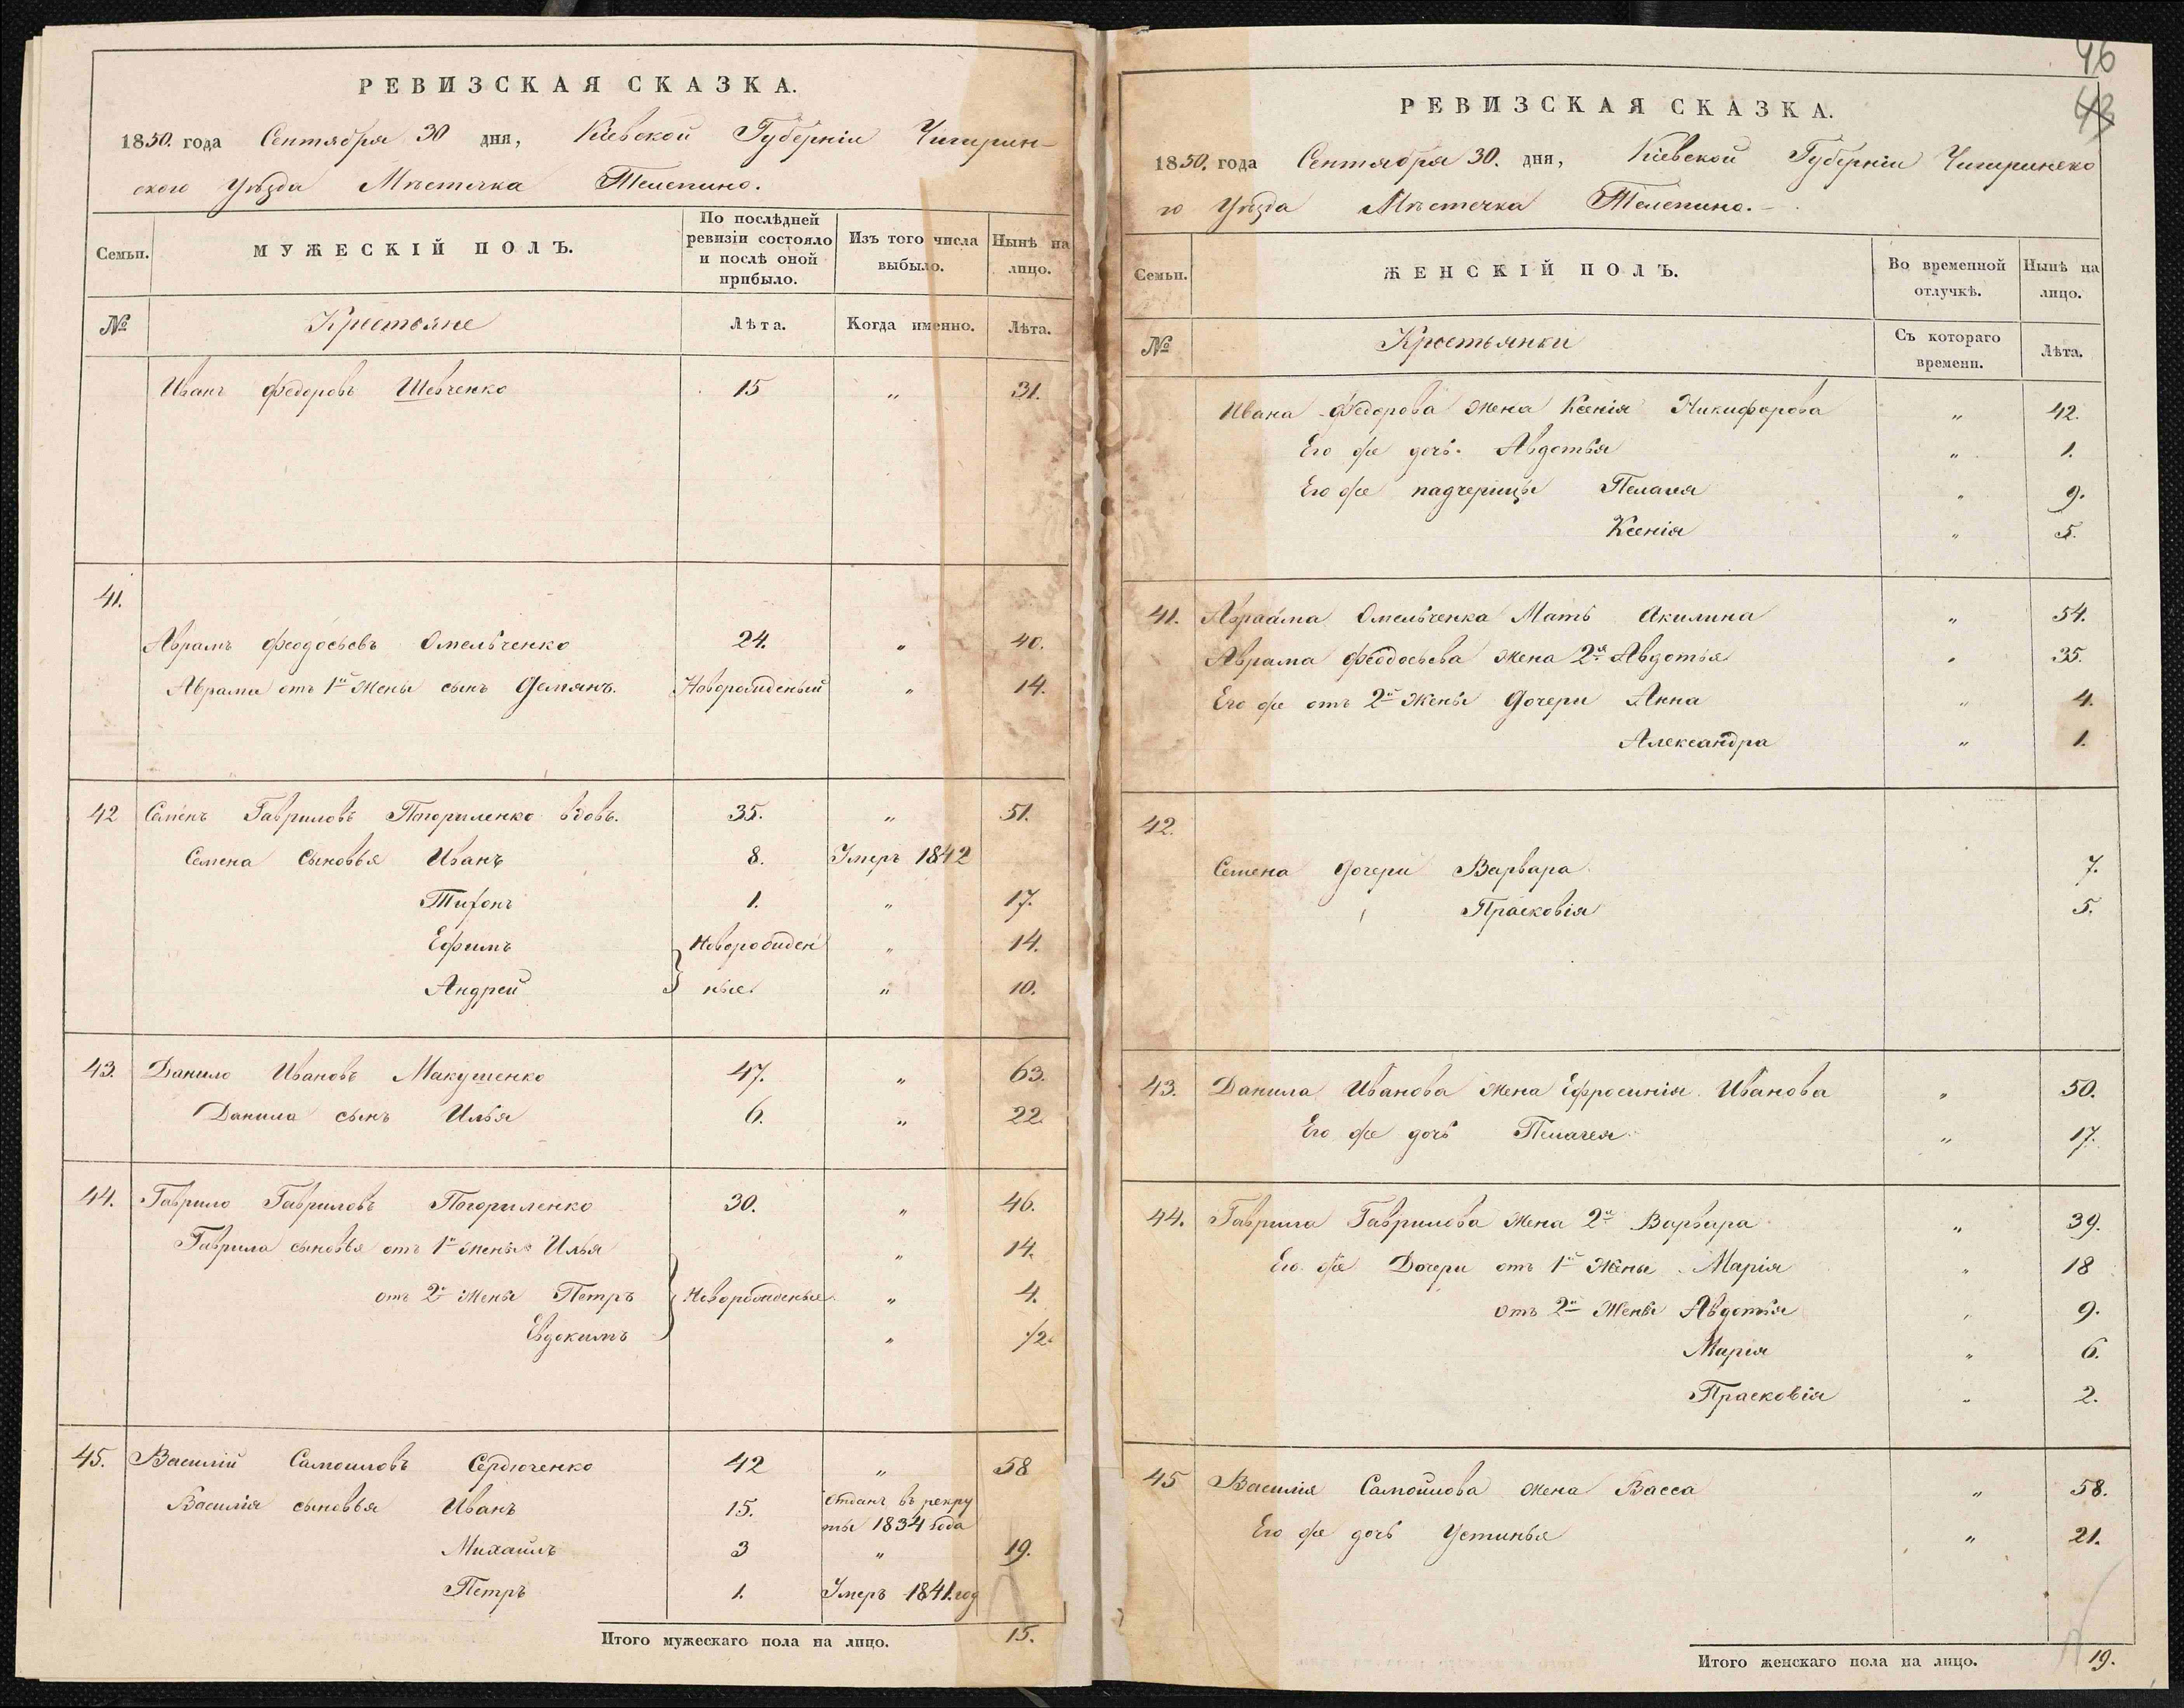 РЕВИЗСКАЯ СКАЗКА.
1850. года Сентября 30 дня, Кіевской Губерніи Чигирин-
ского Уѣзда Мѣстечка Телепино.
Семьи. МУЖЕСКІЙ ПОЛЪ. По послѣдней ревизіи состояло и послѣ оной прибыло. Изъ того числа выбыло. Нынѣ на лицо.
№ Крестьяне Лѣта. Когда именно. Лѣта.
Иванъ Федоровъ Шевченко 15 " 31.
41.
Аврамъ Феодосьевъ Омельченко 24. " 40.
Аврама отъ 1й жены сынъ Демянъ. Новорожденый " 14.
42 Семенъ Гавриловъ Погориленко вдовъ. 35. " 51.
Семена сыновья Иванъ 8. Умеръ 1842
Тихонъ 1. " 17.
Ефимъ Новорожден " 14.
Андрей ные. " 10.
43. Данило Ивановъ Макушенко 47. " 63.
Данила сынъ Илья 6. " 22.
44. Гаврило Гавриловъ Погориленко 30. " 46.
Гаврила сыновья отъ 1й жены Илья " 14.
отъ 2й жены Петръ Новорожденые " 4.
Евдокимъ " 1/2.
45. Василій Самоиловъ Сердюченко 42 " 58
Василія сыновья Иванъ 15. отданъ въ рекру
ты 1834 года
Михаилъ 3 " 19.
Петръ 1. Умеръ 1841. год
Итого мужескаго пола на лицо. 15.
46
43
РЕВИЗСКАЯ СКАЗКА.
1850. года Сентября 30. дня, Кіевской Губерніи Чигиринско
го Уѣзда Мѣстечка Телепино.-
Семьи. ЖЕНСКІЙ ПОЛЪ. Во временной отлучкѣ. Нынѣ на лицо.
№ Крестьянки Съ котораго времени. Лѣта.
Ивана Федорова жена Ксенія Никифорова " 42.
Его же дочь. Авдотья " 1.
Его же падчерицы Пелагея " 9.
Ксенія " 5.
41. Авраама Омельченка Мать Акилина " 54.
Аврама Феодосьева жена 2я Авдотья " 35.
Его же отъ 2й жены Дочери Анна " 4.
Александра " 1.
42.
Семена Дочери Варвара 7.
Прасковія 5.
43. Данила Иванова жена Ефросинія Иванова " 50.
Его же дочь Пелагея " 17.
44. Гаврила Гаврилова жена 2я Варвара " 39.
Его же Дочери отъ 1й жены Марія " 18
отъ 2й жены Авдотья " 9.
Марія " 6.
Прасковія " 2.
45 Василія Самойлова жена Васса " 58.
Его же дочь Устинья " 21.
Итого женскаго пола на лицо. 19.